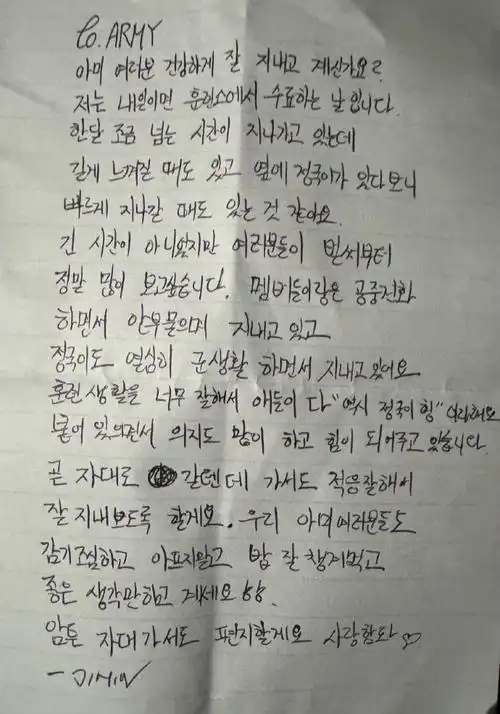 to. ARMY
아미 여러분 건강하게 잘 지내고 계신가요?
저는 내일이면 훈련소에서 수료하는 날입니다.
한달 조금 넘는 시간이 지나가고 있는데
길게 느껴질 때도 있고 옆에 정국이가 있다보니
빠르게 지나간 때도 있는 것 같아요.
긴 시간이 아니었지만 여러분들이 벌써부터
정말 많이 보고싶습니다. 멤버들이랑은 공중전화
하면서 안부물으며 지내고 있고
정국이도 열심히 군생활 하면서 지내고 있어요
훈련 생활을 너무 잘해서 애들이 다 "역시 정국이 형" 이라해요
붙어 있으면서 의지도 많이 하고 힘이 되어주고 있습니다.
곧 자대로 갈텐데 가서도 적응잘해서
잘 지내보도록 할게요. 우리 아미여러분들도
감기조심하고 아프지말고 밥 잘 챙겨먹고
좋은 생각만하고 계세요 ㅎㅎ.
암튼 자대가서도 편지할게요 사랑함다♡
- JIMIN